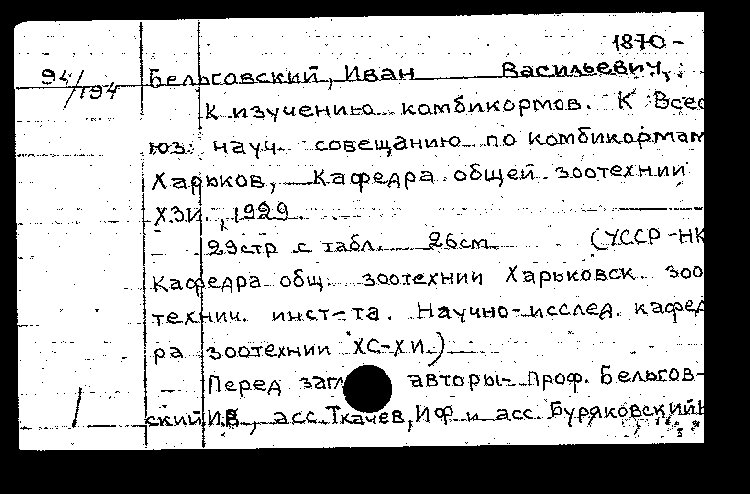 1870-
94/194 Бельговский, Иван Васильевич,
К изучению комбикормов. К Всес
юз. науч. совещанию по комбикормам
Харьков, Кафедра общей зоотехнии
ХЗИ., 1929.
29стр с табл. 26см (УССР-НК
Кафедра общ. зоотехнии Харьковск. зоо
технич. инст-та. Научно-исслед. кафед
ра зоотехнии ХС-ХИ.)
Перед загл авторы: Проф. Бельгов-
ский И.В., асс. Ткачев, И Ф и асс. Буряковский